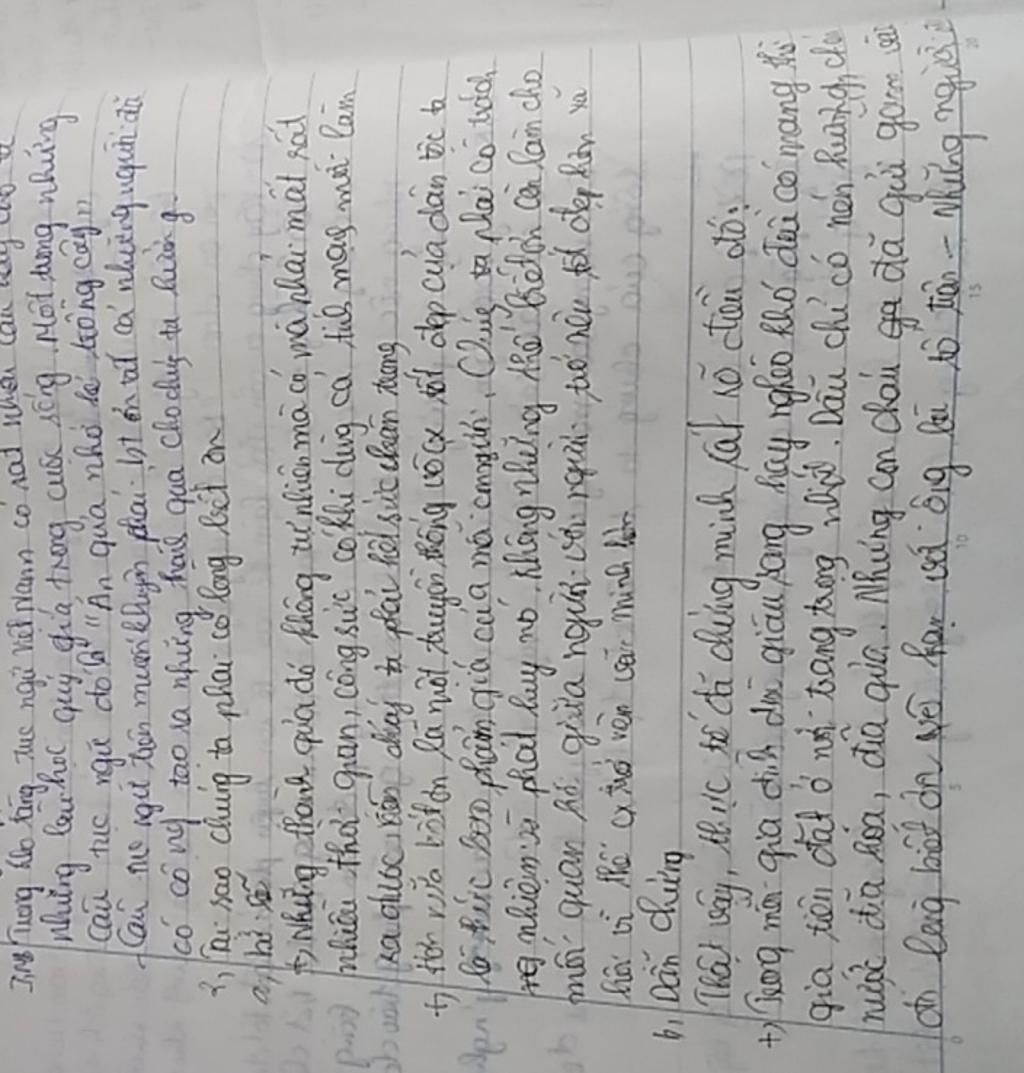 Trong kho tàng tục ngữ Việt Nam có rất nhiều câu hay
những bài học quý giá trong cuộc sống. Một trong những
câu tục ngữ đó là "Ăn quả nhớ kẻ trồng cây"
- Câu tục ngữ trên muốn khuyên phải biết ơn tất cả những người đã
có công tạo ra những thành quả cho chúng ta hưởng.
2, Tại sao chúng ta phải có lòng biết ơn
a,
+, Những thành quả đó không tự nhiên mà có mà phải mất rất
nhiều thời gian, công sức có khi dùng cả tính mạng mới làm
ra được vì vậy ta phải hết sức trân trọng
+, Hơn nữa biết ơn là một truyền thống vô cx tốt đẹp của dân tộc ta
là thước đo phẩm giá của mỗi con người. Chúng ta phải có trách
nhiệm phát huy nó, không những thế biết ơn còn làm cho
mối quan hệ giữa người với người trở nên tốt đẹp hơn xã
hội vì thế cx trở nên văn minh hơn
b, Dẫn chứng
Thật vậy, thực tế đã chứng minh rất rõ điều đó:
+, Trong mỗi gia đình dù giàu sang hay nghèo khó đều có mang thờ
gia tiên đặt ở nơi trang trọng nhất. Dẫu chỉ có nén hương, chén
nước đĩa hoa, đĩa quả. Nhưng con cháu đã gửi gắm
lòng biết ơn vô hạn với ông bà tổ tiên - Những người